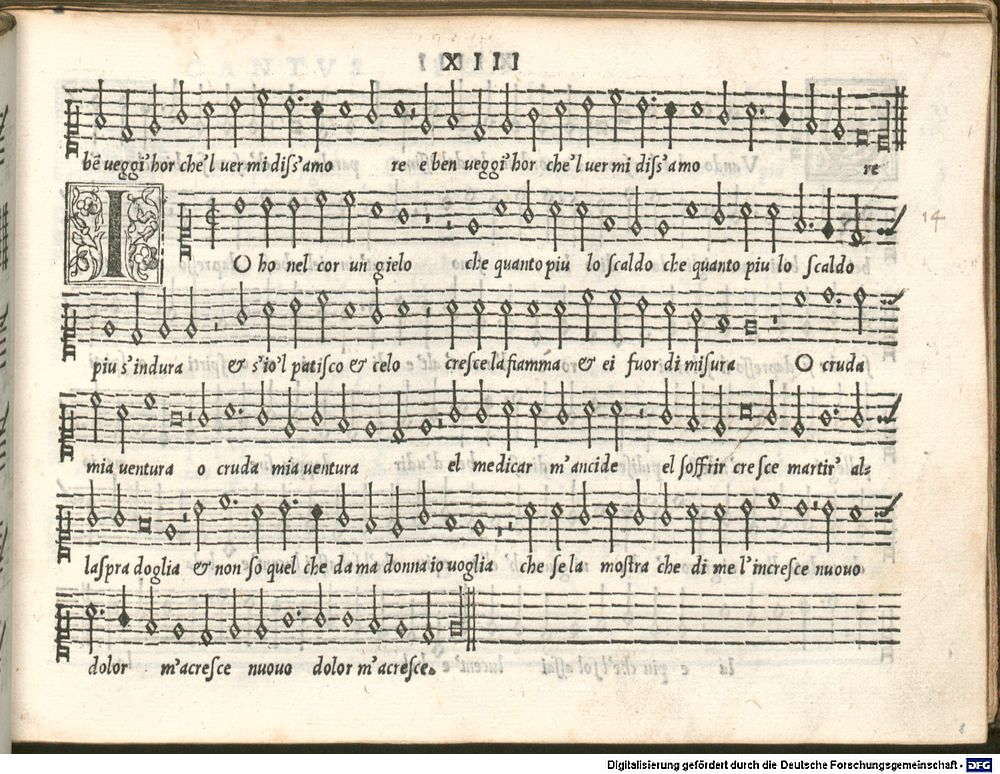 IXIIII
bẽ ueggi'hor che'l uer mi diſs'amo re e ben ueggi'hor che'l uer mi diſs'amo re
14
IO ho nel cor un gielo che quanto piu lo ſcaldo che quanto piu lo ſcaldo
piu s'indura & s'io'l patiſco & celo creſce la fiamma & ei fuor di miſura O cruda
mia uentura o cruda mia uentura el medicar m'ancide el ſoffrir creſce martir' al-
laſpra doglia & non ſo quel che da ma donna io uoglia che ſe la moſtra che di me l'increſce nuouo
dolor m'acreſce nuouo dolor m'acreſce.
8
Digitalisierung gefördert durch die Deutsche Forschungsgemeinschaft - DFG